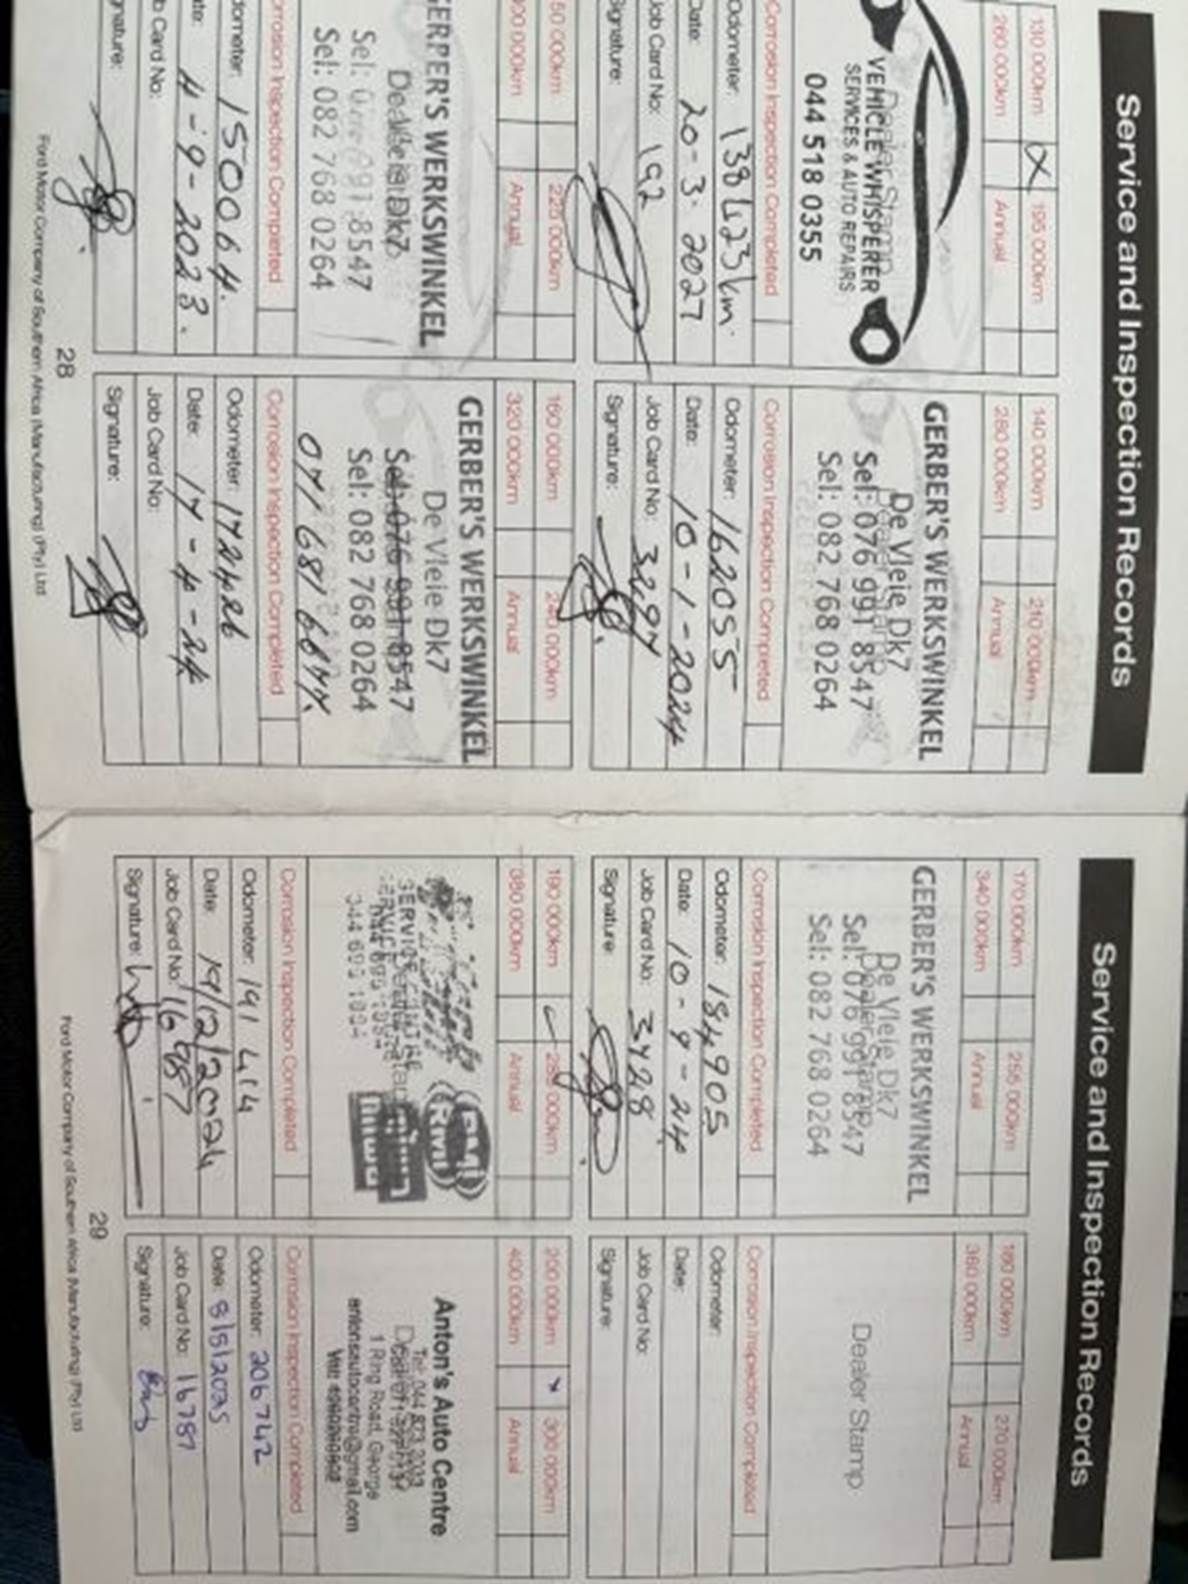 Service and Inspection Records
130 000km X 195 000km
260 000km Annual
VEHICLE WHISPERER
SERVICES & AUTO REPAIRS
044 518 0355
Corrosion Inspection Completed
Odometer: 138423km.
Date: 20-3-2027
Job Card No: 192
Signature:
140 000km 210 000km
280 000km Annual
GERBER'S WERKSWINKEL
De Vleie Dk7
Sel: 076 991 8547
Sel: 082 768 0264
Corrosion Inspection Completed
Odometer: 162055
Date: 10-1-2024
Job Card No: 3297
Signature:
50 000km 225 000km
00 000km Annual
GERPER'S WERKSWINKEL
8547
Sel: 082 768 0264
rrosion Inspection Completed
dometer: 150064.
ate: 4-9-2023.
b Card No:
gnature:
160 000km 240 000km
320 000km Annual
GERBER'S WERKSWINKEL
De Vleie Dk7
Sel: 076 991 8547
Sel: 082 768 0264
071 681 6677.
Corrosion Inspection Completed
Odometer: 172426
Date: 17-4-24
Job Card No:
Signature:
28
Ford Motor Company of Southern Africa (Manufacturing) (Pty) Ltd
Service and Inspection Records
170 000km 255 000km
340 000km Annual
GERBER'S WERKSWINKEL
De Vleie Dk7
Sel: 076 991 8547
Sel: 082 768 0264
Corrosion Inspection Completed
Odometer: 184905
Date: 10-9-24
Job Card No: 3428
Signature:
180 000km 270 000km
360 000km Annual
Dealer Stamp
Corrosion Inspection Completed
Odometer:
Date:
Job Card No:
Signature:
190 000km 285 000km
380 000km Annual
SERVICE CENTRE
RMI
Corrosion Inspection Completed
Odometer: 191 414
Date: 19/12/2024
Job Card No: 16987
Signature:
200 000km 300 000km
400 000km Annual
Anton's Auto Centre
Tel: 044 873 2003
1 Ring Road, George
antonsautocentre@gmail.com
Corrosion Inspection Completed
Odometer: 206742
Date: 8/5/2025
Job Card No: 16787
Signature:
29
Ford Motor Company of Southern Africa (Manufacturing) (Pty) Ltd